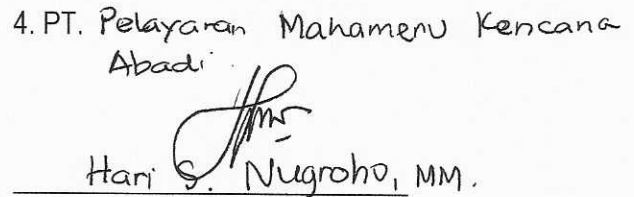 4. PT. Pelayaran Mahameru Kencana
Abadi
Hari S. Nugroho, MM.